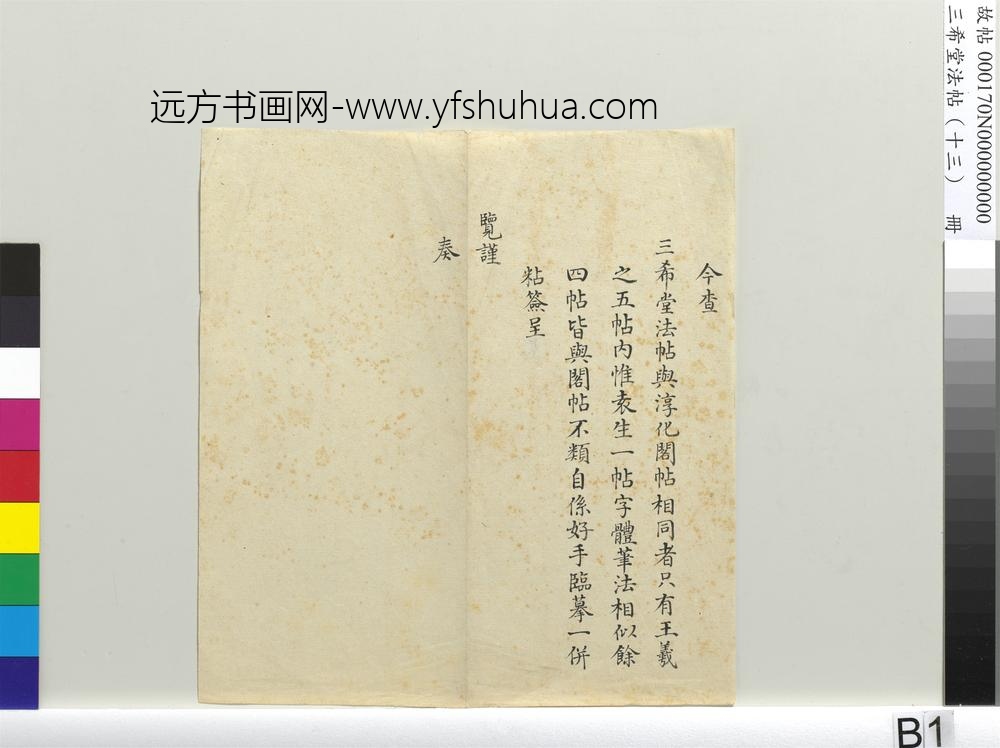 远方书画网-www.yfshuhua.com
故帖 000170N000000000
三希堂法帖（十三） 冊
今查
三希堂法帖與淳化閣帖相同者只有王羲
之五帖内惟袁生一帖字體筆法相似餘
四帖皆與閣帖不類自係好手臨摹一併
粘簽呈
覽謹
奏
B1